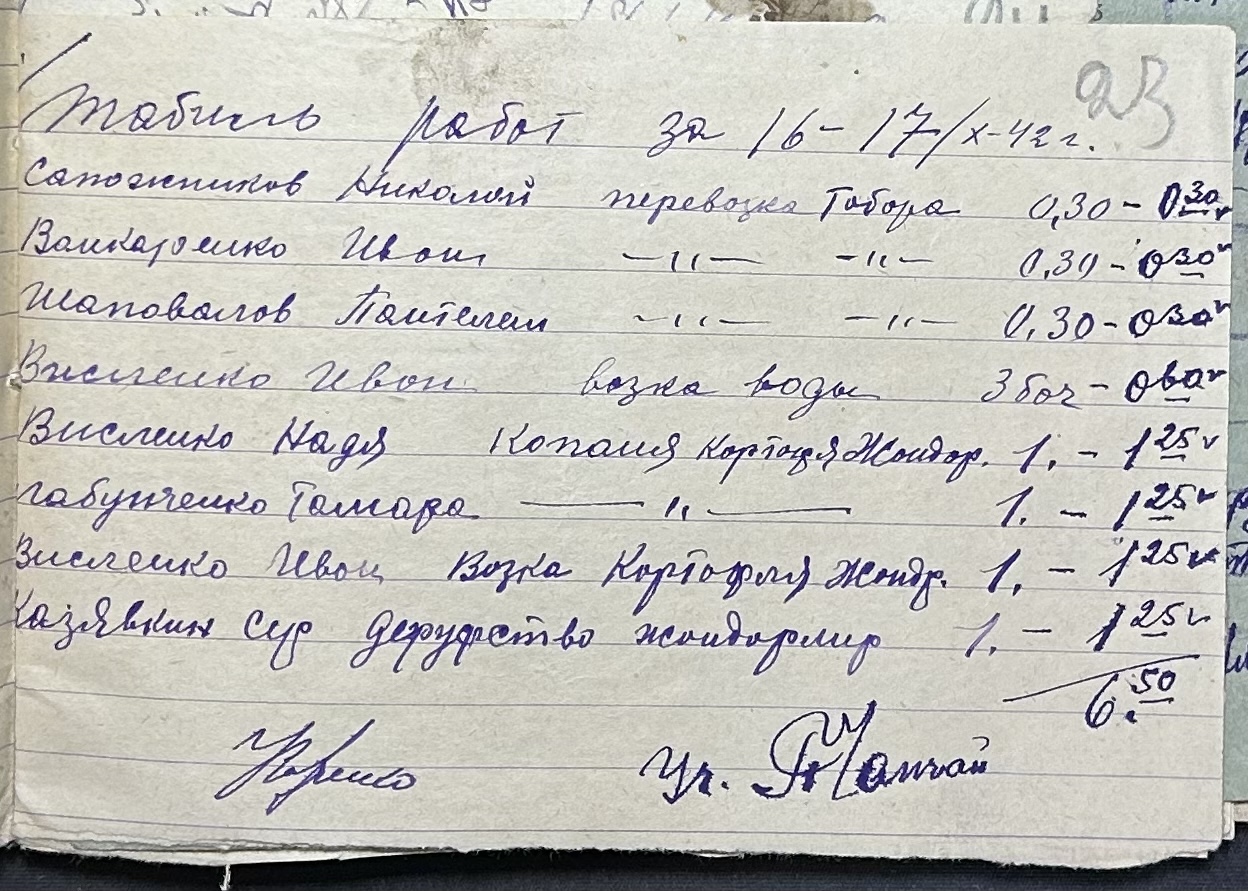 23
Табиль работ за 16-17/X-42 г.
Сапожников Николай перевозка Табора 0,30 - 0 30
Иван -"- -"- 0,30 - 0 30
Шаповалов Пантелей -"- -"- 0,30 - 0 30
Висленко Иван возка воды 3 боч - 0 60
Висленко Надя Копания Картофля Жандар. 1. - 1 25
Табунченко Тамара -"- 1. - 1 25
Висленко Иван Возка Картофля Жандр. 1. - 1 25
Казявкин дежурство 1. - 1 25
6.50
Уч.